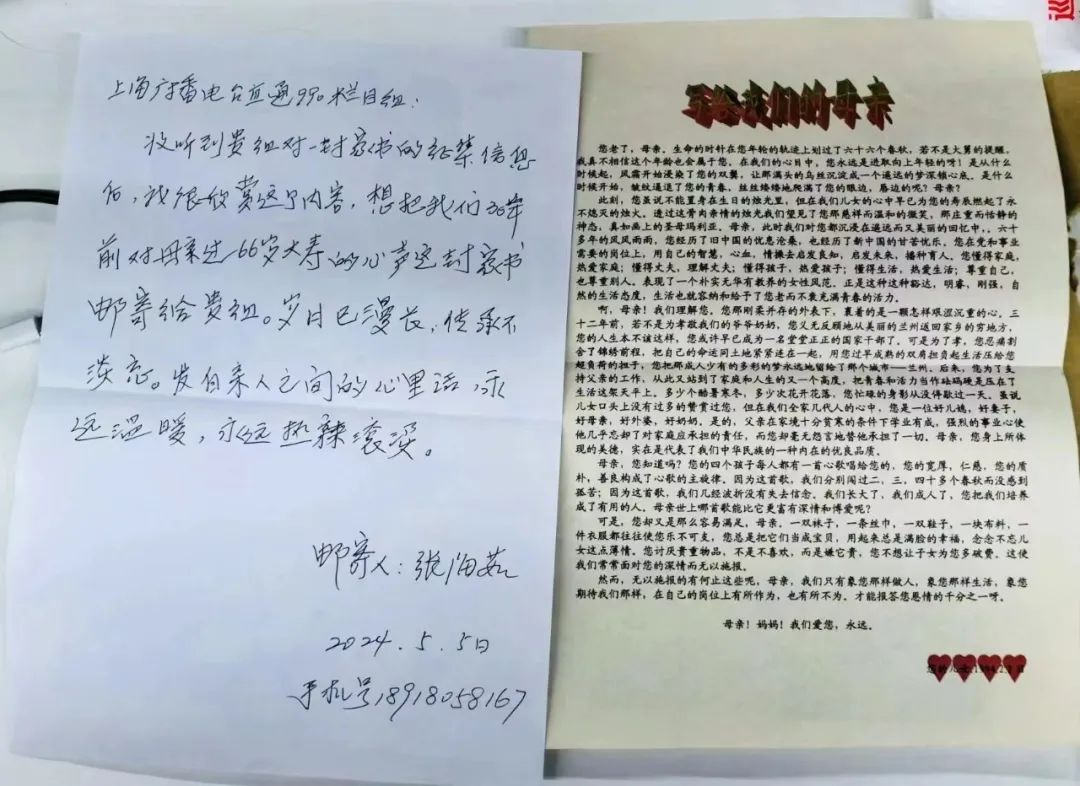 上海广播电台直通990栏目组:
没听到贵组对一封家书的征集信息
后,我很欣赏这个内容,想把我们30年
前对母亲过66岁大寿的心声这封家书
邮寄给贵组。岁月已漫长,传承不
淡忘。发自亲人之间的心里话,永
远温暖,永远热辣滚烫。
邮寄人:张海茹
2024.5.5日
手机号18918058167
写给我们的母亲
您老了,母亲。生命的时针在您年轮的轨迹上划过了六十六个春秋。若不是大舅的提醒,
我真不相信这个年龄也会属于您。在我们的心目中,您永远是进取向上年轻的呀!是从什么
时候起,风霜开始浸染了您的双鬓,让那满头的乌丝沉淀成一个遥远的梦深锁心底。是什么
时候开始,皱纹通透了您的青春,丝丝缕缕地爬满了您的眼边,唇边的呢?母亲?
此刻,您虽说不能置身在生日的烛光里,但在我们儿女的心中早已为您的寿辰燃起了永
不熄灭的烛火。透过这骨肉亲情的烛光我们望见了您那慈祥而温和的微笑,那庄重而恬静的
神态,真如画上的圣母玛利亚。母亲,此时我们对您都沉浸在遥远而又美丽的回忆中,。六十
多年的风风雨雨,您经历了旧中国的忧患沧桑,也经历了新中国的甘苦忧乐。您在党和事业
需要的岗位上,用自己的智慧,心血,情操去启发良知,启发未来,播种育人。您懂得家庭,
热爱家庭;懂得丈夫,理解丈夫;懂得孩子,热爱孩子;懂得生活,热爱生活;尊重自己,
也尊重别人。表现了一个朴实无华有教养的女性风范。正是这种这种豁达,明睿,刚强,自
然的生活态度,生活也就容纳和给予了您老而不衰充满青春的活力。
啊,母亲!我们理解您。您那刚柔并存的外表下,裹着的是一颗怎样艰涩沉重的心。三
十二年前,若不是为孝敬我们的爷爷奶奶,您义无反顾地从美丽的兰州返回家乡的穷地方,
您的人生本不该这样,您或许早已成为一名堂堂正正的国家干部了。可是为了孝,您忍痛割
舍了锦绣前程,把自己的命运同土地紧紧连在一起,用您过早成熟的双肩担负起生活压给您
超负荷的担子,您把那成人少有的多彩的梦永远地留给了那个城市—兰州。后来,您为了支
持父亲的工作,从此又站到了家庭和人生的又一个高度,把青春和活力当作砝码硬是压在了
生活这架天平上。多少个酷暑寒冬,多少次花开花落,您忙碌的身影从没得歇过一天。虽说
儿女口头上没有过多的赞赏过您,但在我们全家几代人的心中,您是一位好儿媳,好妻子,
好母亲,好外婆,好奶奶。是的,父亲在家境十分贫寒的条件下学业有成,强烈的事业心使
他几乎忘却了对家庭应承担的责任,而您却毫无怨言地替他承担了一切。母亲,您身上所体
现的美德,实在是代表了我们中华民族的一种内在的优良品质。
母亲,您知道吗?您的四个孩子每人都有一首心歌唱给您的,您的宽厚,仁慈,您的质
朴,善良构成了心歌的主旋律。因为这首歌,我们分别闯过二,三,四十多个春秋而没感到
孤苦;因为这首歌,我们几经波折没有失去信念。我们长大了,我们成人了,您把我们培养
成了有用的人。母亲世上哪首歌能比它更富有深情和博爱呢?
可是,您却又是那么容易满足,母亲。一双袜子,一条丝巾,一双鞋子,一块布料,一
件衣服都往往使您乐不可支,您总是把它们当成宝贝,用起来总是满脸的幸福,念念不忘儿
女这点薄情。您讨厌贵重物品,不是不喜欢,而是嫌它贵,您不想让子女为您多破费。这使
我们常常面对您的深情而无以施报。
然而,无以施报的有何止这些呢,母亲,我们只有象您那样做人,象您那样生活,象您
期待我们那样,在自己的岗位上有所作为,也有所不为。才能报答您恩情的千分之一呀。
母亲!妈妈!我们爱您,永远。